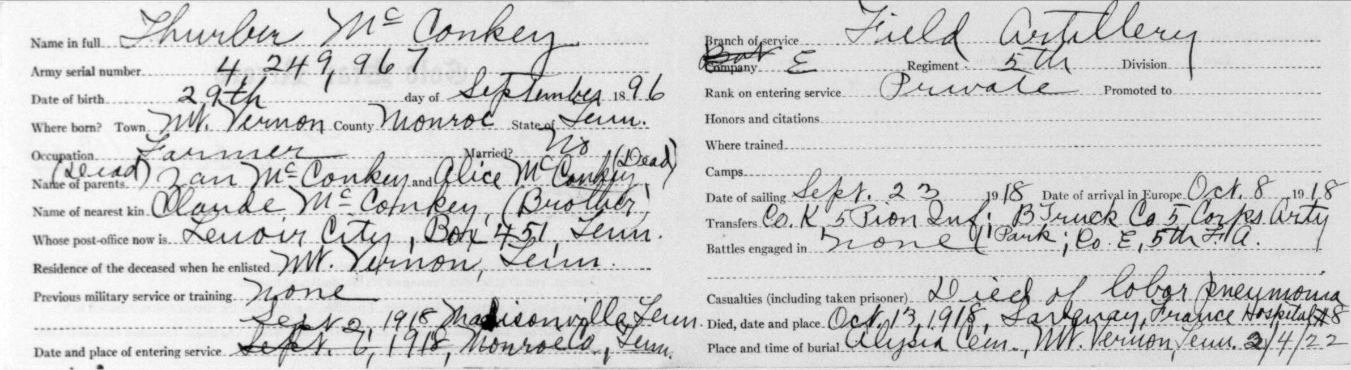 Name in full Thurber McConkey
Army serial number 4,249,967
Date of birth 29th day of September 1896
Where born? Town Mt. Vernon County Monroe State of Tenn.
Occupation Farmer Married? No
(Dead) (Dead)
Name of parents Zan McConkey and Alice McConkey
Name of nearest kin Claude McConkey, (Brother)
Whose post-office now is Lenoir City, Box 451, Tenn.
Residence of the deceased when he enlisted Mt. Vernon, Tenn.
Previous military service or training None
Sept 2, 1918 Madisonville Tenn.
Date and place of entering service Sept. 6, 1918, Monroe Co., Tenn.
Branch of service Field Artillery
Bat
Company E Regiment 5th Division
Rank on entering service Private Promoted to
Honors and citations
Where trained
Camps
Date of sailing Sept. 23 1918 Date of arrival in Europe Oct. 8 1918
Transfers Co. K, 5 Pion Inf; B Truck Co 5 Corps Arty
Battles engaged in none (Park; Co. E, 5th F.A.
Casualties (including taken prisoner) Died of lobar pneumonia
Died, date and place Oct. 13, 1918, France Hospital #8
Place and time of burial Cem., Mt. Vernon, Tenn. 2/4/22